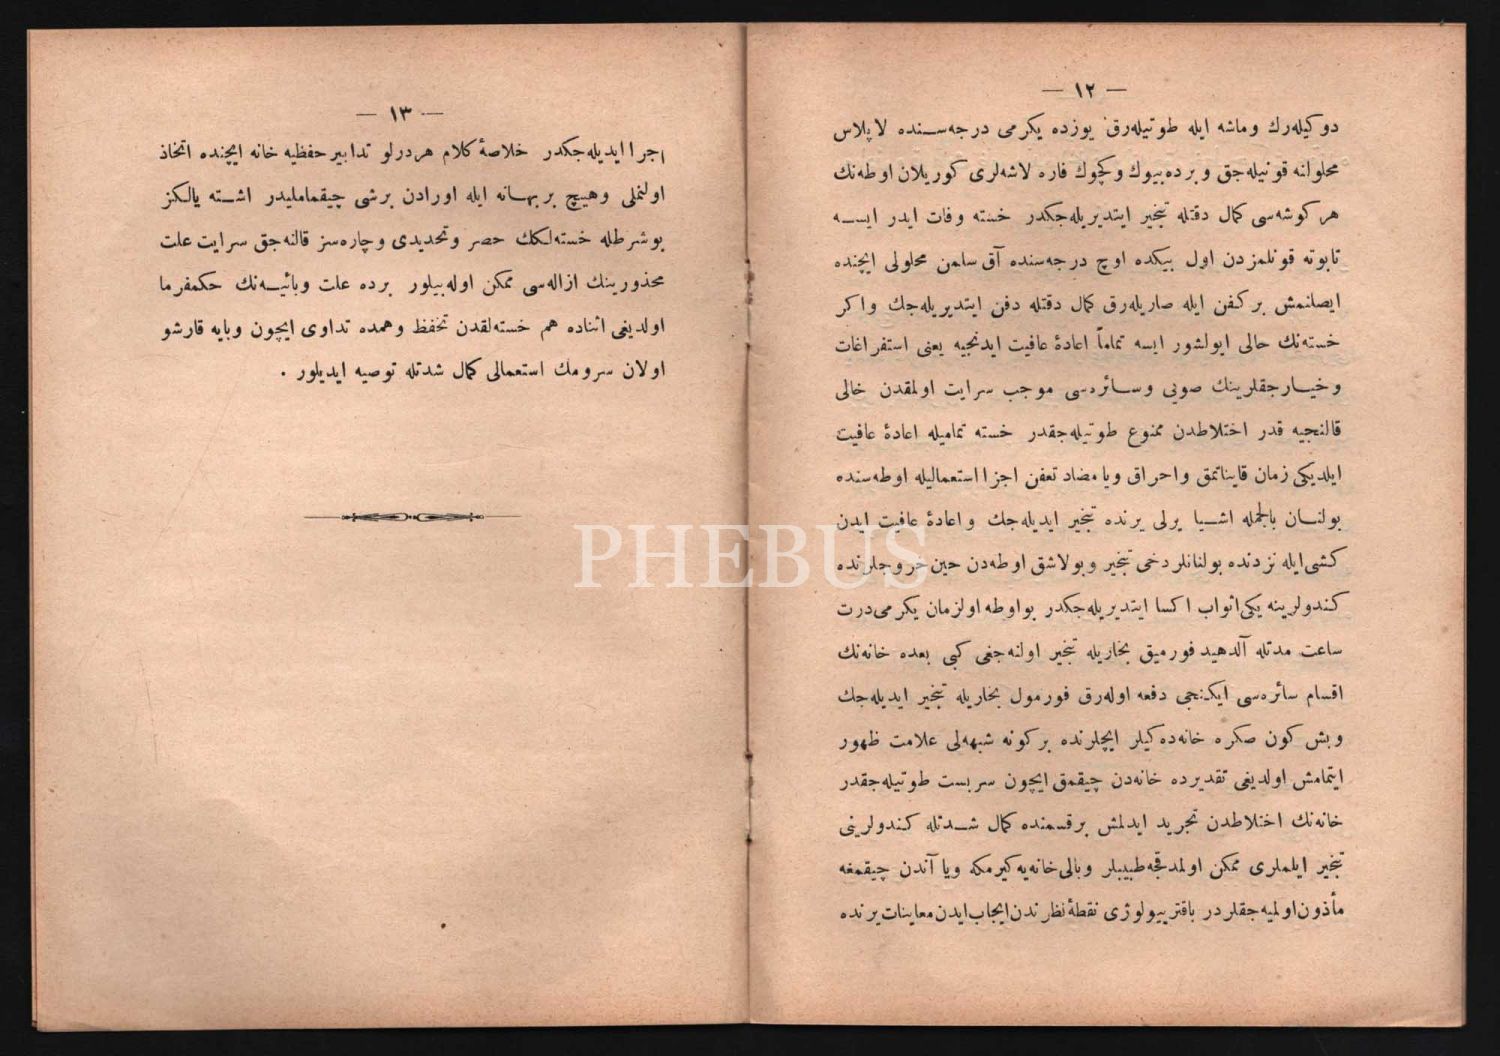 — ١٢ —
دوكيله‌رك وماشه ايله طوتيله‌رق يوزده يكرمى درجه‌سنده لاپلاس
محلولنه قونيله‌جق وبرده بيوك وكچوك فاره لاشه‌لرى كوريلان اوطه‌نك
هركوشه‌سى كمال دقتله تبخير ايتديريله‌جكدر خسته وفات ايدر ايسه
تابوته قونلمزدن اول بيكده اوچ درجه‌سنده آق سلمن محلولى ايچنده
ايصلنمش بركفن ايله صاريله‌رق كمال دقتله دفن ايتديريله‌جك واكر
خسته‌نك حالى ايولشور ايسه تماماً اعادهٔ عافيت ايدنجيه يعنى استفراغات
وخيارجقلرينك صويى وسائره‌سى موجب سرايت اولمقدن خالى
قالنجيه قدر اختلاطدن ممنوع طوتيله‌جقدر خسته تماميله اعادهٔ عافيت
ايلديكى زمان قايناتمق واحراق ويا مضاد تعفن اجزا استعماليله اوطه‌سنده
بولنان بالجمله اشيا يرلى يرنده تبخير ايديله‌جك واعادهٔ عافيت ايدن
كشى ايله نزدنده بولنانلردخى تبخير وبولاشق اوطه‌دن حين خروجلرنده
كندولرينه يكى اثواب اكسا ايتديريله‌جكدر بواوطه اولزمان يكرمى درت
ساعت مدتله آلدهيد فورميق بخاريله تبخير اولنه‌جغى كبى بعده خانه‌نك
اقسام سائره‌سى ايكنجى دفعه اوله‌رق فورمول بخاريله تبخير ايديله‌جك
وبش كون صكره خانه‌ده‌كيلر ايچلرنده بركونه شبهه‌لى علامت ظهور
ايتمامش اولديغى تقديرده خانه‌دن چيقمق ايچون سربست طوتيله‌جقدر
خانه‌نك اختلاطدن تجريد ايدلمش برقسمنده كمال شدتله كندولرينى
تبخير ايلملرى ممكن اولمدقجه طبيبلر وبالى خانه‌يه كيرمكه ويا آندن چيقمغه
مأذون اولميه‌جقلردر باقتريولوژى نقطهٔ نظرندن ايجاب ايدن معاينات يرنده
— ١٣ —
اجرا ايديله‌جكدر خلاصهٔ كلام هردرلو تدابير حفظيه خانه ايچنده اتخاذ
اولنملى وهيچ بربهانه ايله اورادن برشى چيقماملیدر اشته يالكز
بوشرطله خسته‌لكك حصر وتحديدى وچاره‌سز قالنه‌جق سرايت علت
محذورينك ازاله‌سى ممكن اوله‌بيلور برده علت وبائيه‌نك حكمفرما
اولديغى اثناده هم خسته‌لقدن تحفظ وهمده تداوى ايچون وبايه قارشو
اولان سرومك استعمالى كمال شدتله توصيه ايديلور .
PHEBUS